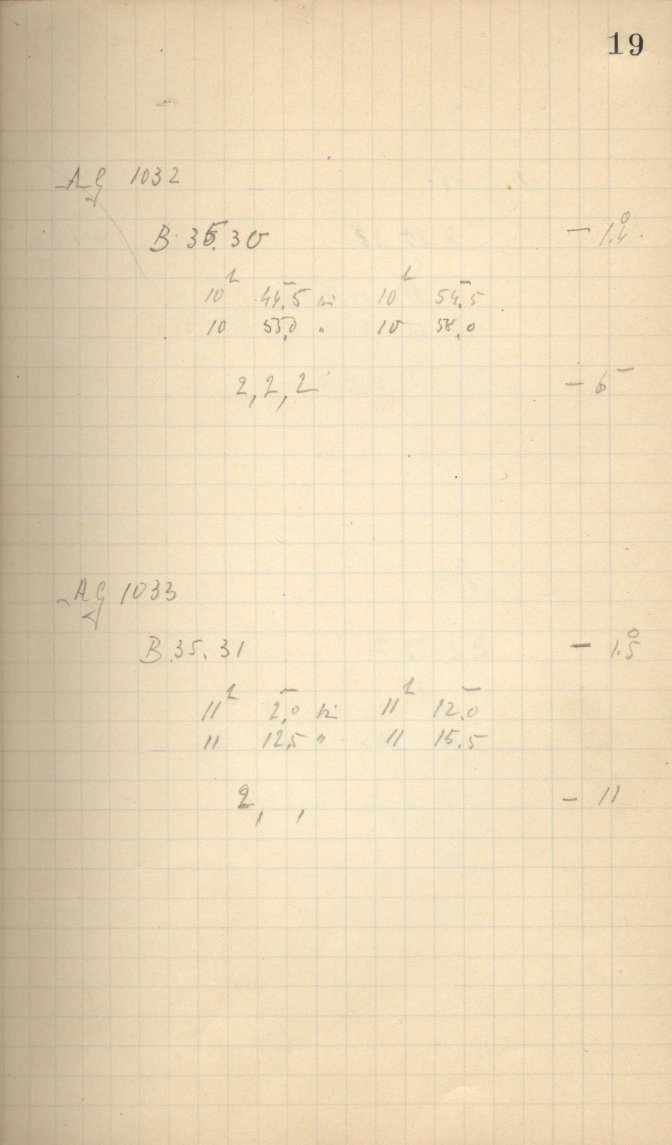 19
AG 1032
B. 35.30 - 1.4°
10h 44.5 bis 10h 54.5
10 55.0 " 10 58.0
2, 2, 2 - 6
AG 1033
B. 35.31 - 1.5°
11h 2.0 bis 11h 12.0
11 12.5 " 11 15.5
2, , - 11